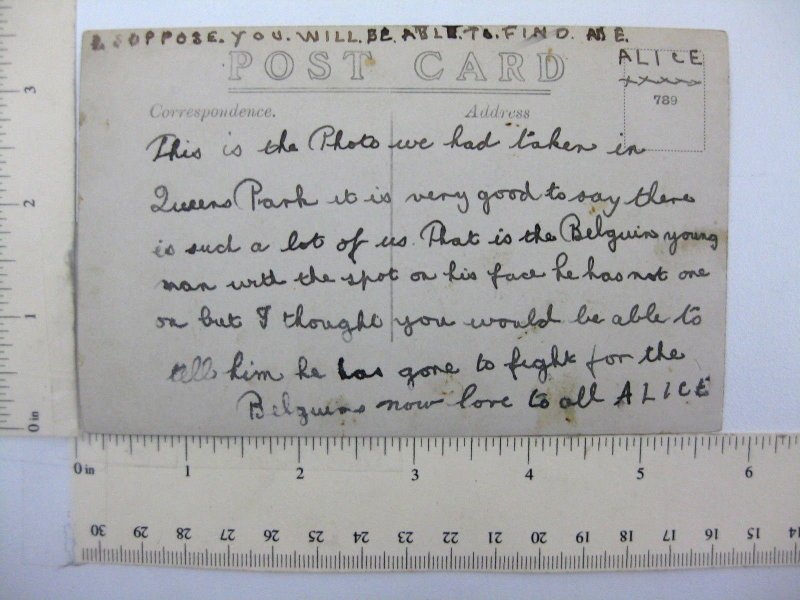 I SUPPOSE.YOU.WILL.BE.ABLE.TO.FIND.ME.
ALICE
POST CARD
789
Correspondence.
Address
This is the Photo we had taken in
Queens Park it is very good to say there
is such a lot of us. That is the Belguin young
man with the spot on his face he has not one
on but I thought you would be able to
tell him he has gone to fight for the
Belguins now love to all ALICE
3
2
1
0 in
0 in 1 2 3 4 5 6
30 29 28 27 26 25 24 23 22 21 20 19 18 17 16 15 14